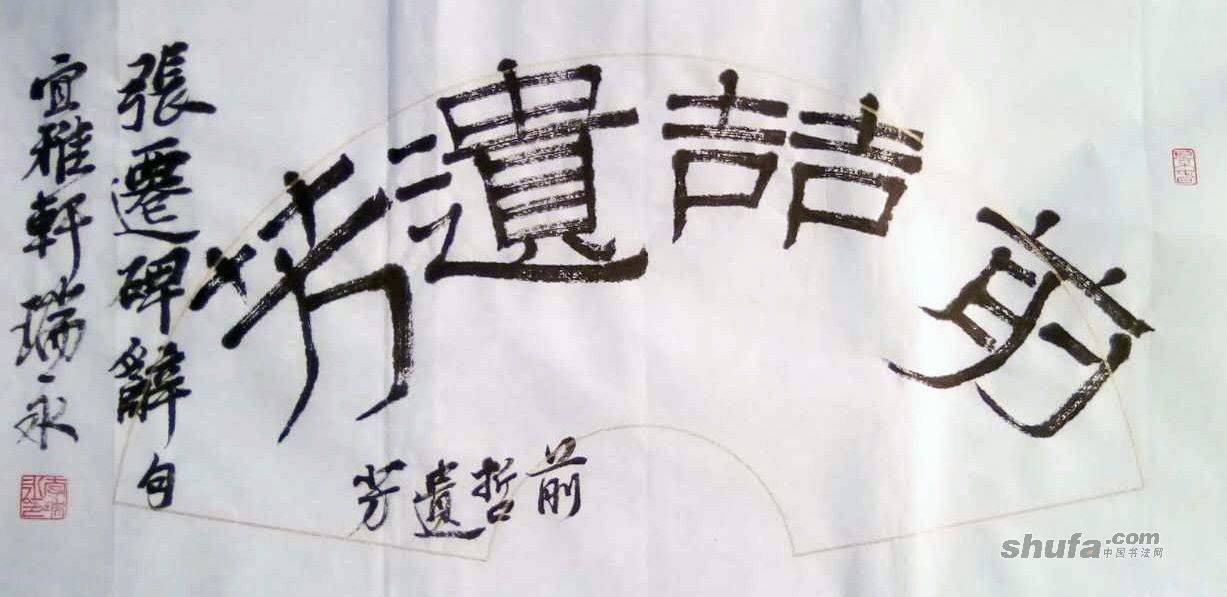 前喆遺芳
前哲遺芳
張遷碑辭句
宜雅軒瑞永
shufa.com
中国书法网